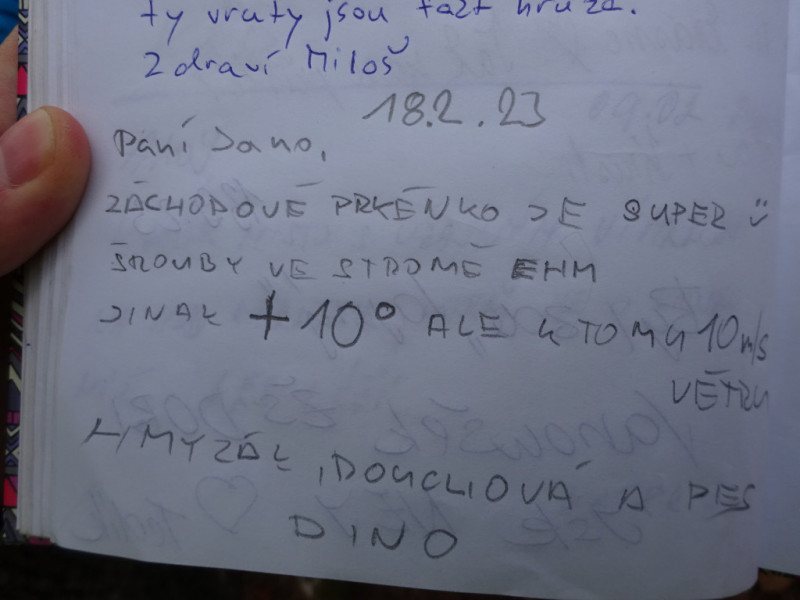 ty vruty jsou fakt hrůza.
Zdraví Miloš
18.2.23
Paní Jano,
ZÁCHODOVÉ PRKÉNKO JE SUPER
ŠROUBY VE STROMĚ EHM
JINAK +10° ALE K TOMU 10 m/s
VĚTRU
HMYZÁK, DOUCLIOVÁ A PES
DINO